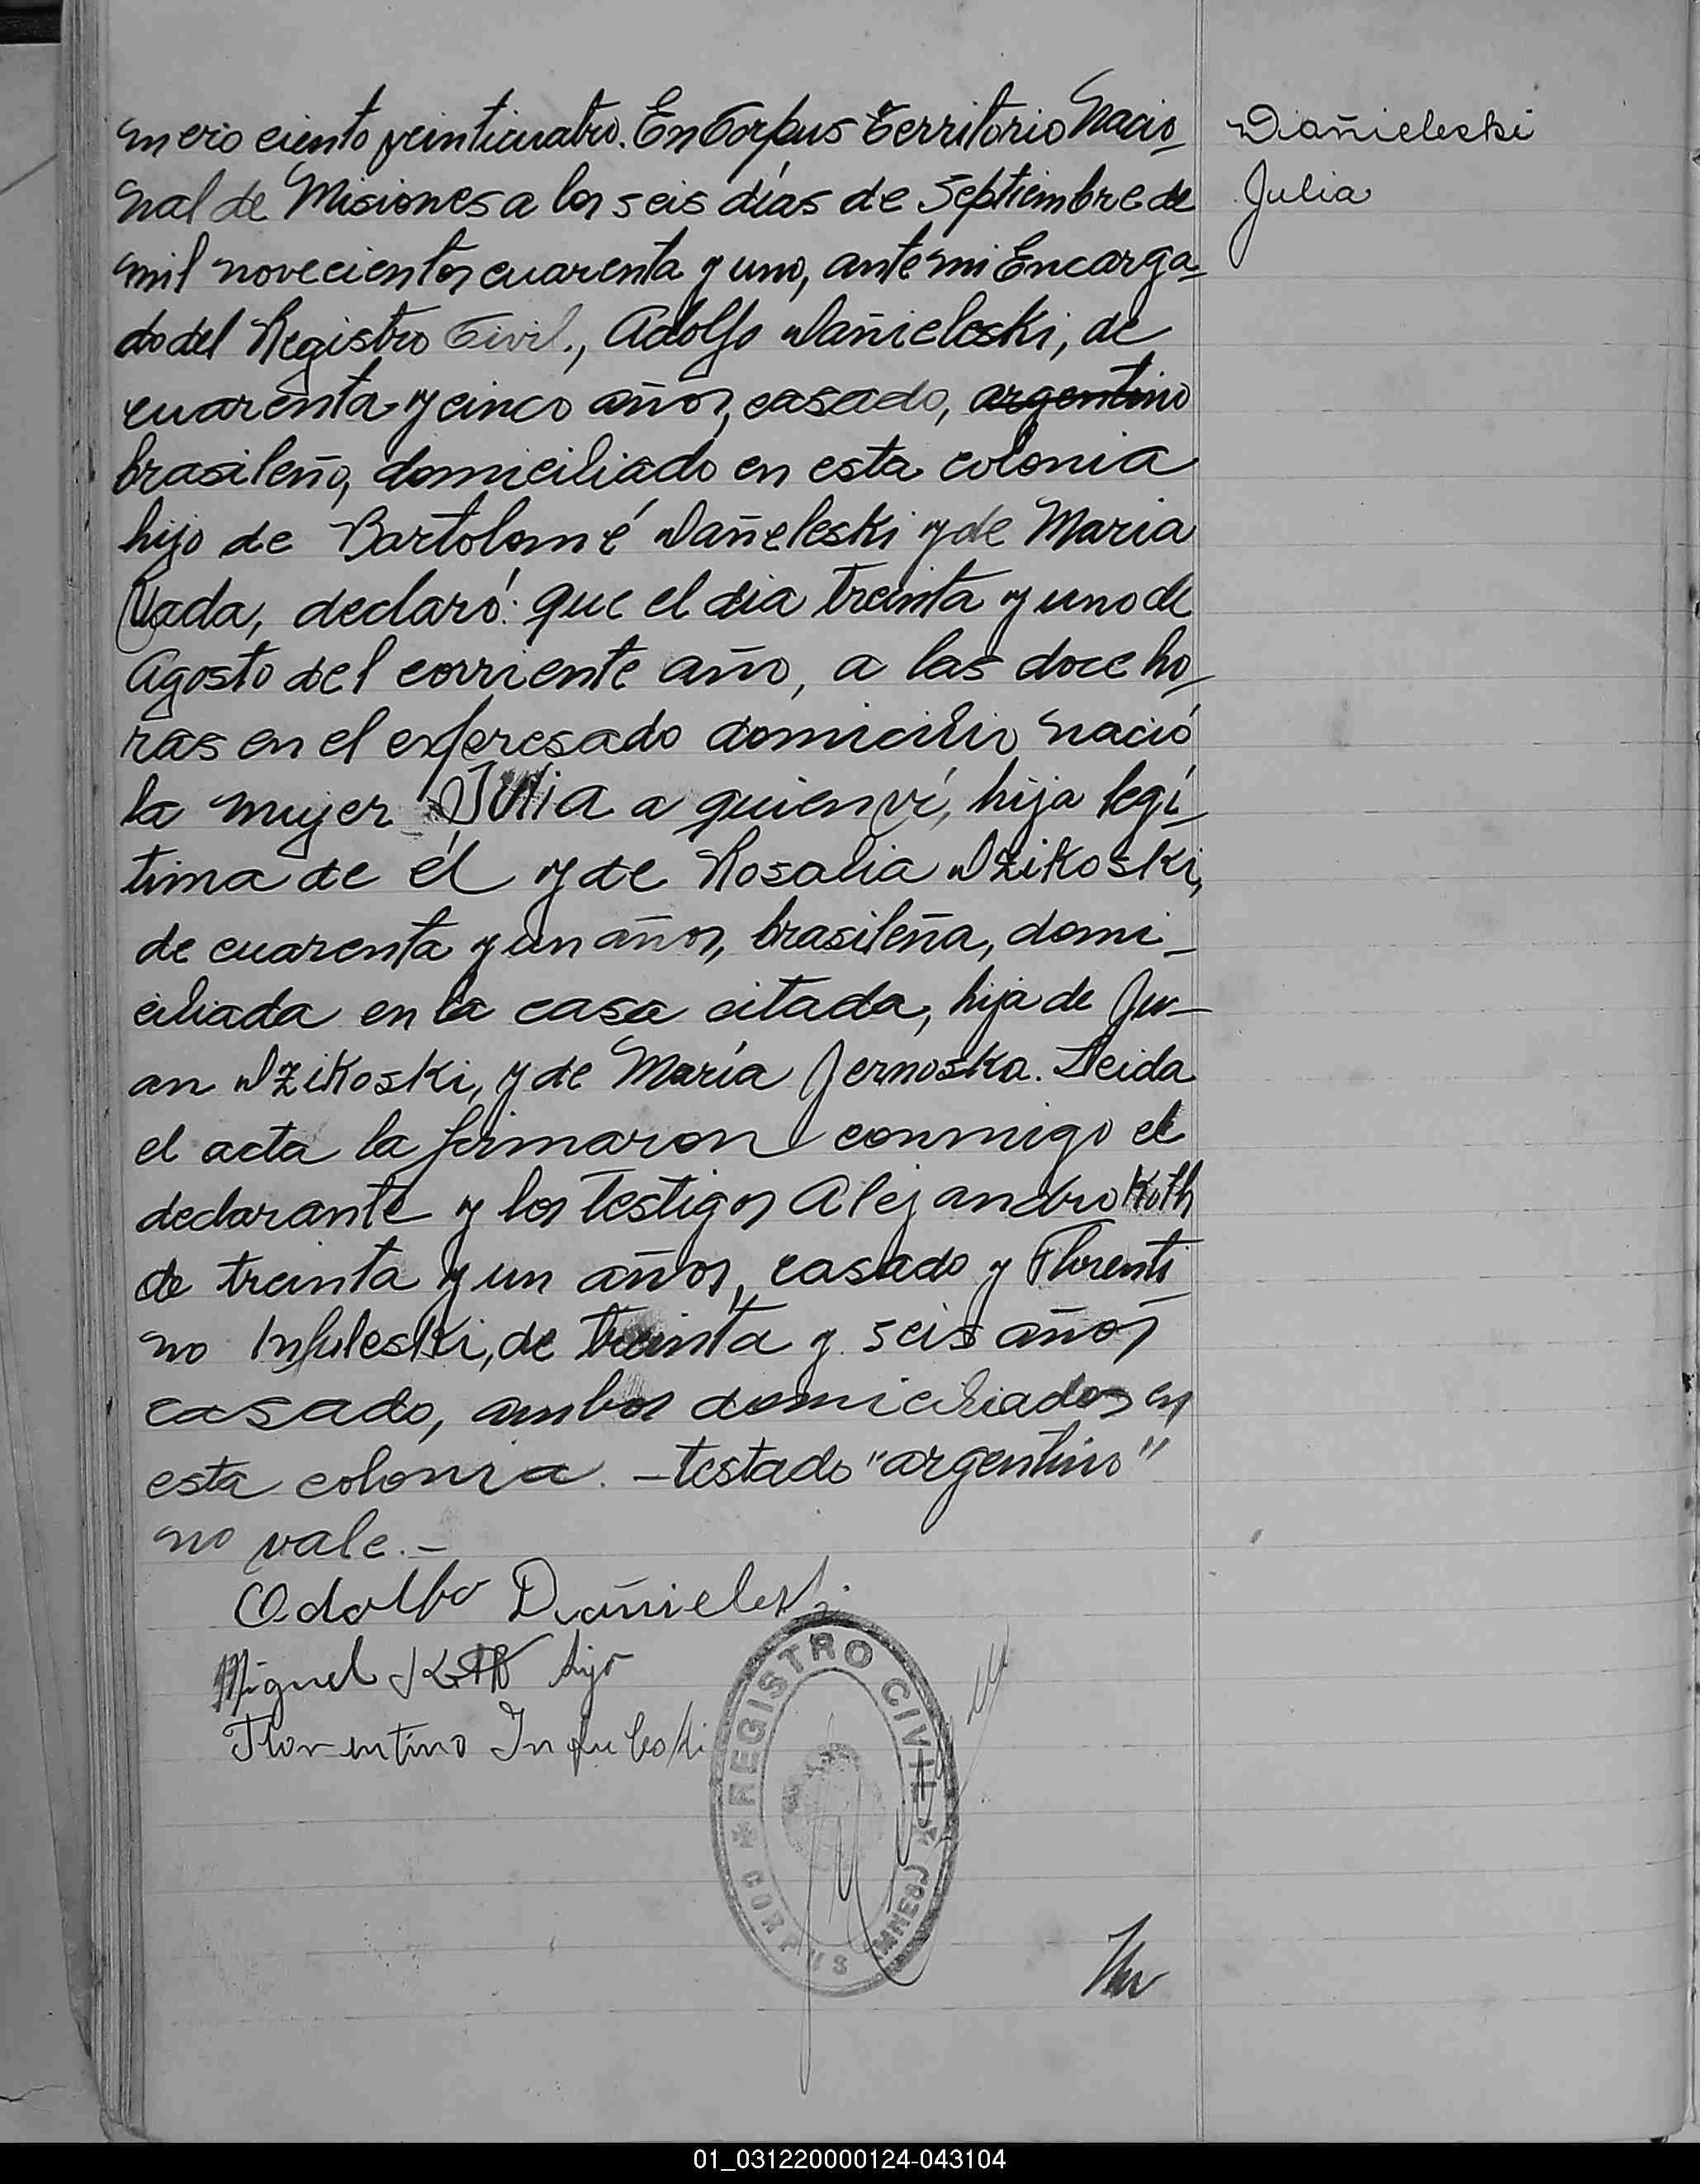 mero ciento veinticuatro. En Corpus Territorio Nacio-
nal de Misiones a los seis días de Septiembre de
mil novecientos cuarenta y uno, ante mi Encarga-
do del Registro Civil, Adolfo Dañieleski, de
cuarenta y cinco años, casado, argentino
brasileño, domiciliado en esta colonia
hijo de Bartolomé Dañeleski y de Maria
Vada, declaró: que el dia treinta y uno de
Agosto del corriente año, a las doce ho-
ras en el expresado domicilio nació
la mujer Julia a quien ví, hija legí-
tima de él y de Rosalia Dzikoski,
de cuarenta y un años, brasileña, domi-
ciliada en la casa citada, hija de Ju-
an Dzikoski, y de María Jernoska. Leida
el acta la firmaron conmigo el
declarante y los testigos Alejandro Koth
de treinta y un años, casado y Florenti
no Infuleski, de treinta y seis años
casado, ambos domiciliados en
esta colonia. - testado "argentino"
no vale.-
Dañieleski
Julia
Adolfo Dañieleski
Miguel hijo
Florentino Infuleski
REGISTRO CIVIL
CORPUS
01_031220000124-043104